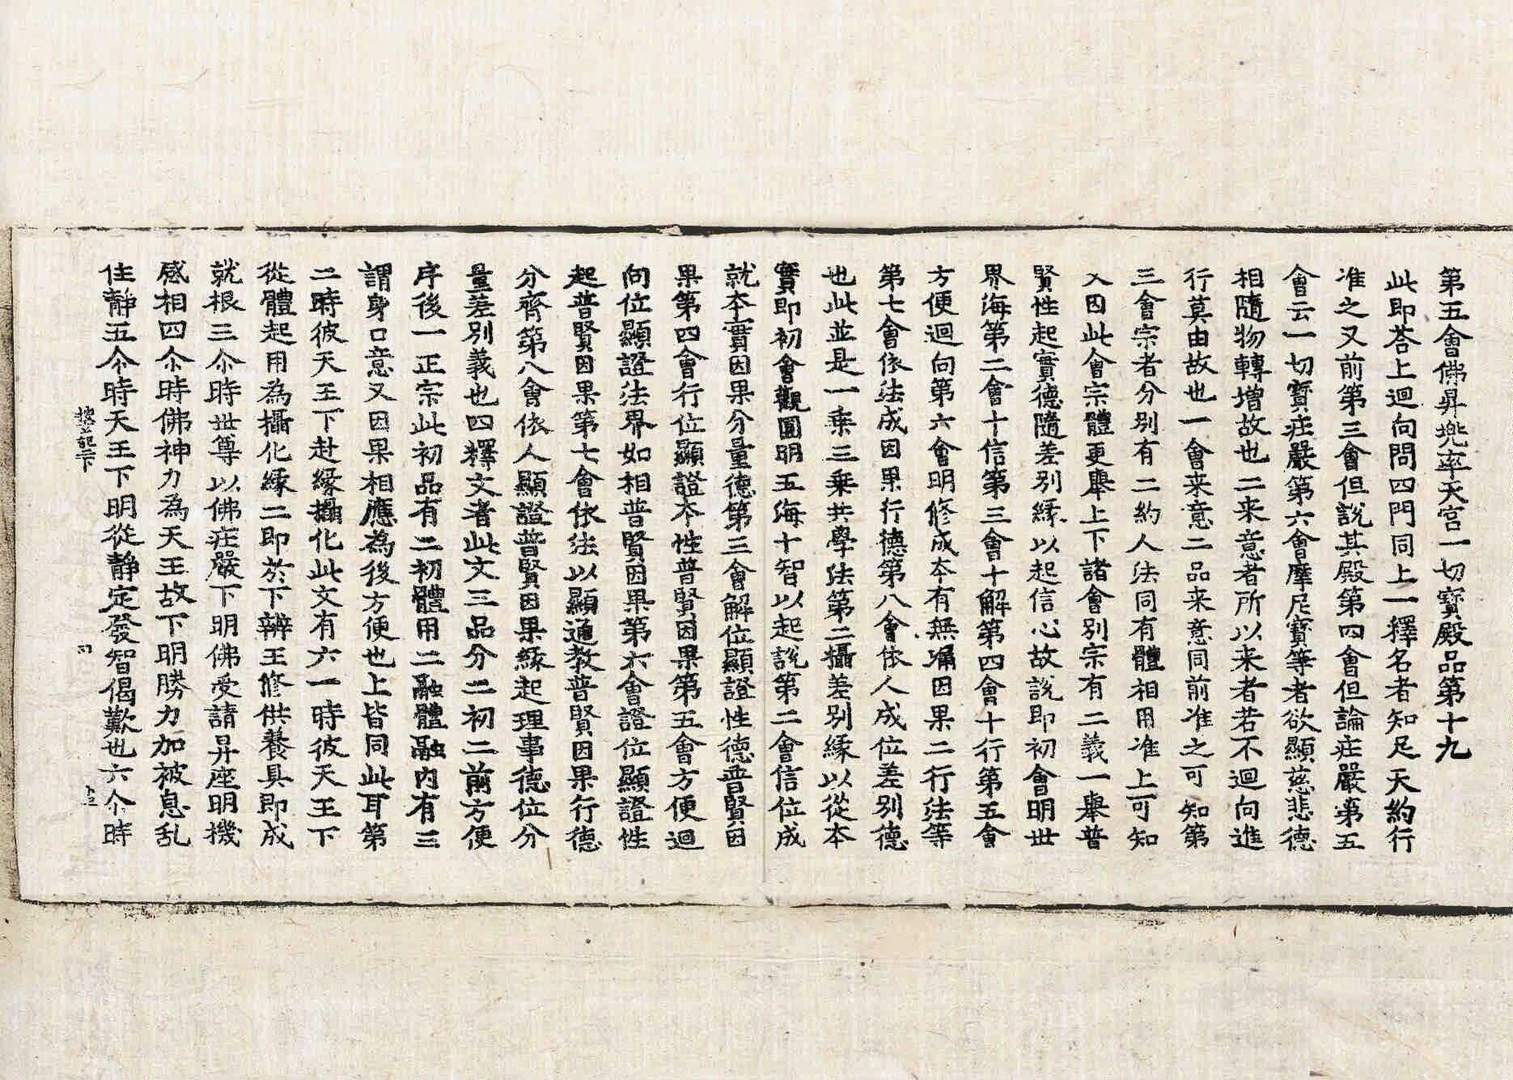 第五會佛昇兠率天宮一切寶殿品第十九
此即荅上迴向問四門同上一釋名者知足天約行
准之又前第三會但說其殿第四會但論庄嚴第五
會云一切寶庄嚴第六會摩尼寶等者欲顯慈悲德
相隨物轉增故也二来意者所以来者若不迴向進
行莫由故也一會来意二品来意同前准之可知第
三會宗者分別有二約人法同有體相用准上可知
入因此會宗體更舉上下諸會別宗有二義一舉普
賢性起實德隨差別緣以起信心故說即初會明世
界海第二會十信第三會十解第四會十行第五會
方便迴向第六會明修成本有無漏因果二行法等
第七會依法成因果行德第八會依人成位差別德
也此並是一乗三乗共學法第二攝差別緣以從本
實即初會觀圓明五海十智以起說第二會信位成
就本實因果分量德第三會解位顯證性德普賢因
果第四會行位顯證本性普賢因果第五會方便迴
向位顯證法界如相普賢因果第六會證位顯證性
起普賢因果第七會依法以顯通教普賢因果行德
分齊第八會依人顯證普賢因果緣起理事德位分
量差別義也四釋文者此文三品分二初二前方便
序後一正宗此初品有二初體用二融體融內有三
謂身口意又因果相應為後方便也上皆同此耳第
二時彼天王下赴緣攝化此文有六一時彼天王下
從體起用為攝化緣二即於下辨王修供養具即成
就根三尒時世尊以佛庄嚴下明佛受請昇座明機
感相四尒時佛神力為天王故下明勝力加被息乱
住靜五尒時天王下明從靜定發智偈歎也六尒時